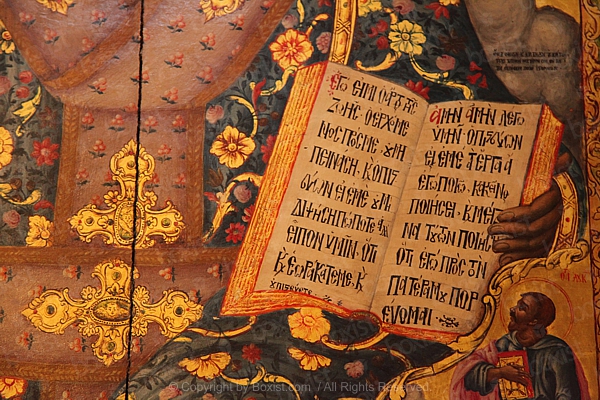 ΕΓΩ ΕΙΜΙ Ο ΑΡΤΟΣ ΤΗΣ
ΖΩΗΣ· Ο ΕΡΧΟΜΕ
ΝΟΣ ΠΡΟΣ ΜΕ ΟΥ ΜΗ
ΠΕΙΝΑΣΗ, Κ̀ Ο ΠΙΣ
ΤΕΥΩΝ ΕΙΣ ΕΜΕ ΟΥ ΜΗ
ΔΙΨΗΣΗ ΠΩΠΟΤΕ
ΕΙΠΟΝ ΥΜΙΝ, ΟΤΙ
Κ̀ ΕΩΡΑΚΑΤΕ ΜΕ, Κ̀
ΟΥ ΠΙΣΤΕΥΕΤΕ
ΑΜΗΝ ΑΜΗΝ ΛΕΓΩ
ΥΜΙΝ Ο ΠΙΣΤΕΥΩΝ
ΕΙΣ ΕΜΕ ΤΑ ΕΡΓΑ Α
ΕΓΩ ΠΟΙΩ, ΚΑΚΕΙΝΟΣ
ΠΟΙΗΣΕΙ, Κ̀ ΜΕΙΖΟ
ΝΑ ΤΟΥΤΩΝ ΠΟΙΗΣΕΙ
ΟΤΙ ΕΓΩ ΠΡΟΣ ΤΟΝ
ΠΑΤΕΡΑ ΜΟΥ ΠΟΡ
ΕΥΟΜΑΙ
© Copyright by Boxist.com / All Rights Reserved.